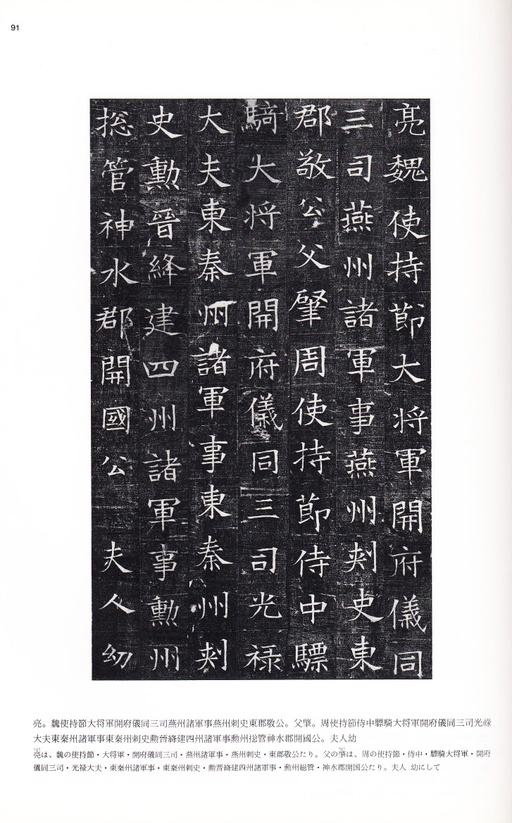 91
亮魏使持節大将軍開府儀同
三司燕州諸軍事燕州刺史東
郡敬公父肇周使持節侍中驃
騎大将軍開府儀同三司光祿
大夫東秦州諸軍事東秦州刺
史勲晉絳建四州諸軍事勲州
揔管神水郡開國公 夫人幼
亮。魏使持節大将軍開府儀同三司燕州諸軍事燕州刺史東郡敬公。父肇。周使持節侍中驃騎大将軍開府儀同三司光祿
大夫東秦州諸軍事東秦州刺史勲晉絳建四州諸軍事勲州揔管神水郡開國公。夫人幼
亮は、魏の使持節・大将軍・開府儀同三司・燕州諸軍事・燕州刺史・東郡敬公たり。父の肇は、周の使持節・侍中・驃騎大将軍・開府
儀同三司・光禄大夫・東秦州諸軍事・東秦州刺史・勲晉絳建四州諸軍事・勲州総管・神水郡開国公たり。夫人 幼にして